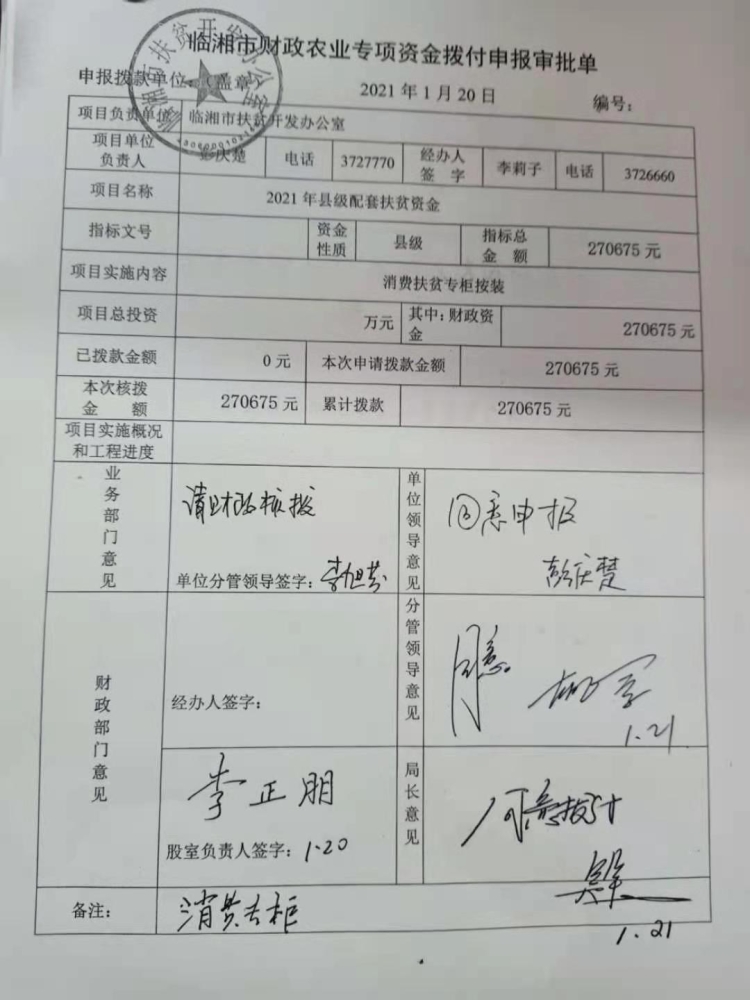 临湘市财政农业专项资金拨付申报审批单
申报拨款单位(盖章)
2021年1月20日
编号:
项目负责单位 临湘市扶贫开发办公室
项目单位负责人 彭庆楚 电话 3727770 经办人签字 李莉子 电话 3726660
项目名称 2021年县级配套扶贫资金
指标文号 资金性质 县级 指标总金额 270675元
项目实施内容 消费扶贫专柜按装
项目总投资 万元 其中:财政资金 270675元
已拨款金额 0元 本次申请拨款金额 270675元
本次核拨金额 270675元 累计拨款 270675元
项目实施概况和工程进度
业务部门意见
请财政核拨
单位分管领导签字:
单位领导意见
同意申报
彭庆楚
财政部门意见
经办人签字:
分管领导意见
同意
1.21
李正朋
股室负责人签字: 1.20
局长意见
1.21
备注: 消费专柜